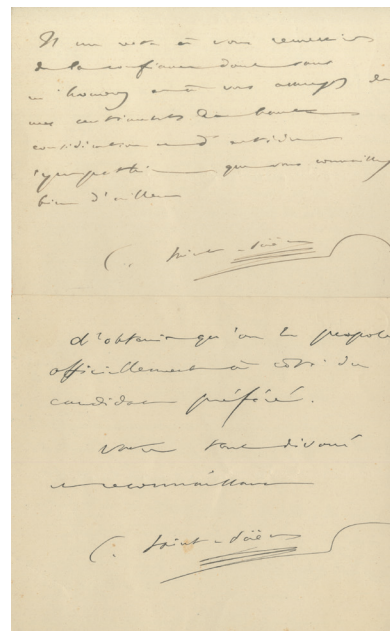 Il me reste à vous remercier
de la confiance dont vous
m'honorez et à vous
mes sentiments de haute
considération et d'entière
sympathie que vous connaissez
bien d'ailleurs
C. Saint-Saëns
d'obtenir qu'on le propose
officiellement à côté du
candidat préféré.
Votre tout dévoué
et reconnaissant
C. Saint-Saëns